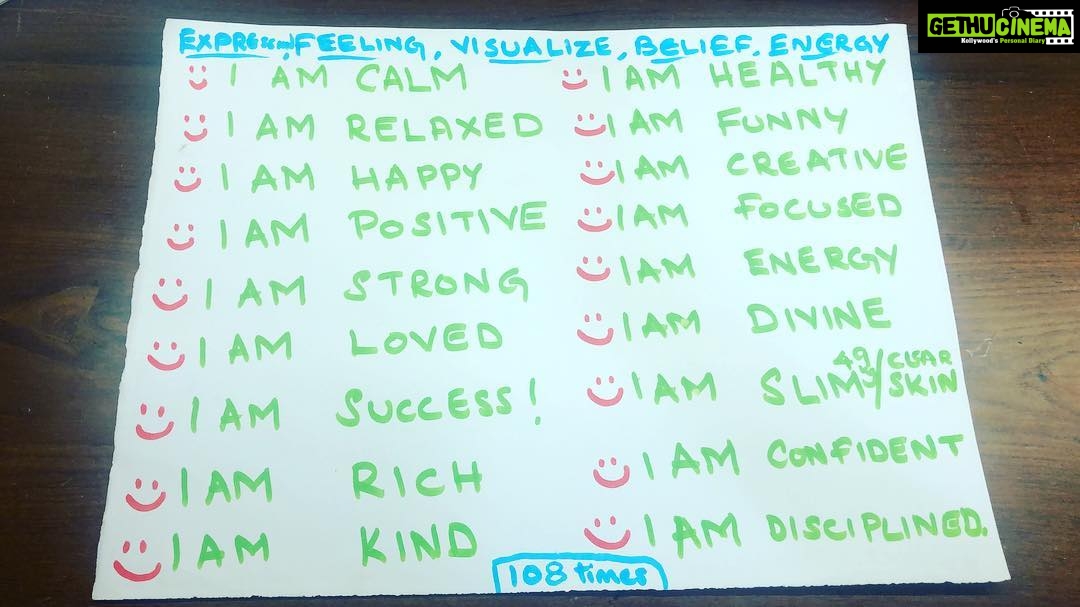 GETHU CINEMA
Kollywood's Personal Diary
EXPRESSION, FEELING, VISUALIZE, BELIEF, ENERGY
I AM CALM
I AM RELAXED
I AM HAPPY
I AM POSITIVE
I AM STRONG
I AM LOVED
I AM SUCCESS!
I AM RICH
I AM KIND
I AM HEALTHY
I AM FUNNY
I AM CREATIVE
I AM FOCUSED
I AM ENERGY
I AM DIVINE
I AM SLIM / CLEAR SKIN
I AM CONFIDENT
I AM DISCIPLINED.
108 times